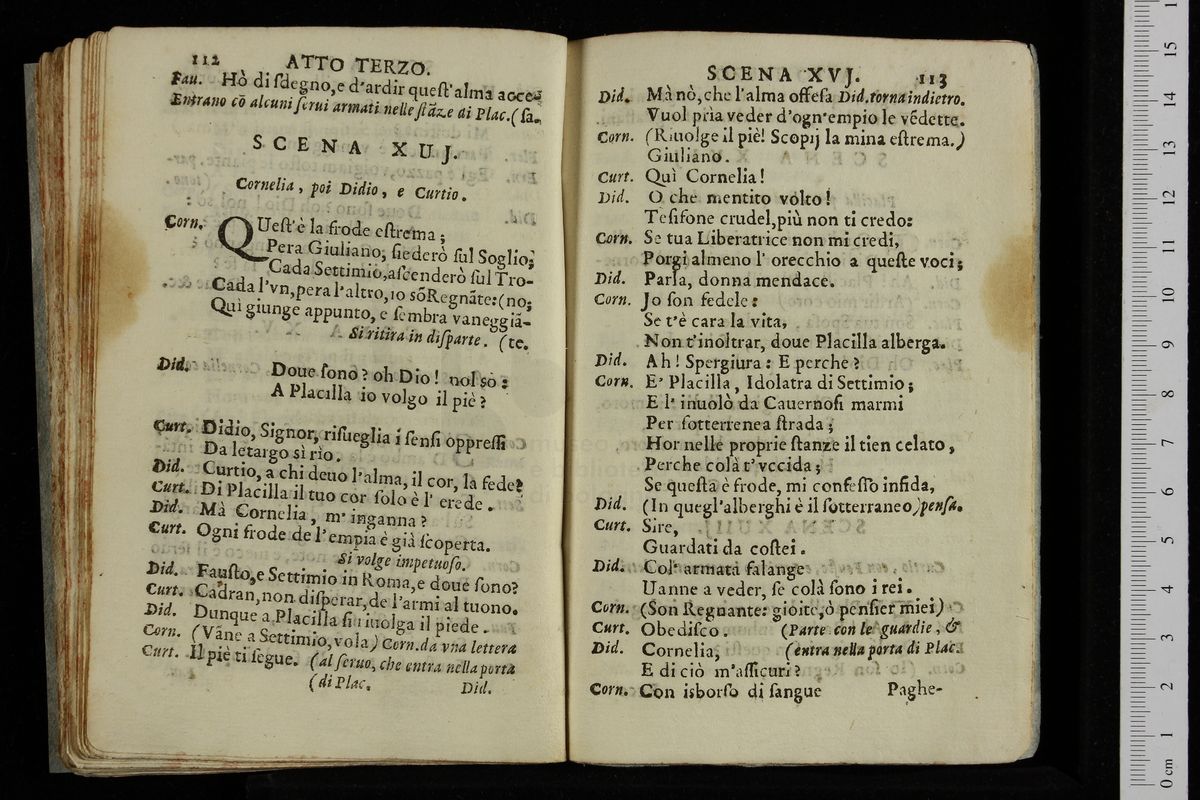 112 ATTO TERZO.
Fau. Hò di ſdegno, e d'ardir queſt'alma acce
Entrano cō alcuni ſerui armati nelle ſtāze di Plac. (ſa.
SCENA XUJ.
Cornelia, poi Didio, e Curtio.
Corn. QUeſt'è la frode eſtrema;
Pera Giuliano; ſiederò ſul Soglio;
Cada Settimio, aſcenderò ſul Tro-
Cada l'vn, pera l'altro, io sō Regnāte: (no;
Quì giunge appunto, e ſembra vaneggiā-
Si ritira in diſparte. (te.
Did. Doue ſono? oh Dio! nol sò:
A Placilla io volgo il piè?
Curt. Didio, Signor, riſueglia i ſenſi oppreſſi
Da letargo sì rìo.
Did. Curtio, a chi deuo l'alma, il cor, la fede?
Curt. Di Placilla il tuo cor ſolo è l'erede.
Did. Mà Cornelia, m'inganna?
Curt. Ogni frode de l'empia è già ſcoperta.
Si volge impetuoſo.
Did. Fauſto, e Settimio in Roma, e doue ſono?
Curt. Cadran, non diſperar, de l'armi al tuono.
Did. Dunque a Placilla ſi riuolga il piede.
Corn. (Vāne a Settimio, vola) Corn. da vna lettera
Curt. Il piè ti ſegue. (al ſeruo, che entra nella porta
(di Plac. Did.
SCENA XVJ. 113
Did. Mà nò, che l'alma offeſa Did. torna indietro.
Vuol prìa veder d'ogn'empio le vēdette.
Corn. (Riuolge il piè! Scopij la mina eſtrema.)
Giuliano.
Curt. Quì Cornelia!
Did. O che mentito volto!
Teſifone crudel, più non ti credo:
Corn. Se tua Liberatrice non mi credi,
Porgi almeno l' orecchio a queſte voci;
Did. Parla, donna mendace.
Corn. Jo ſon fedele:
Se t'è cara la vita,
Non t'inoltrar, doue Placilla alberga.
Did. Ah! Spergiura: E perche?
Corn. E' Placilla, Idolatra di Settimio;
E l' inuolò da Cauernoſi marmi
Per ſotterrenea ſtrada;
Hor nelle proprie ſtanze il tien celato,
Perche colà t'vccida;
Se queſta è frode, mi confeſſo infida,
Did. (In quegl'alberghi è il ſotterraneo) penſa.
Curt. Sire,
Guardati da coſtei.
Did. Col' armata falange
Uanne a veder, ſe colà ſono i rei.
Corn. (Son Regnante: gioite, ò penſier miei)
Curt. Obediſco. (Parte con le guardie, &
Did. Cornelia; (entra nella porta di Plac.
E di ciò m'aſſicuri?
Corn. Con isborſo di ſangue Paghe-